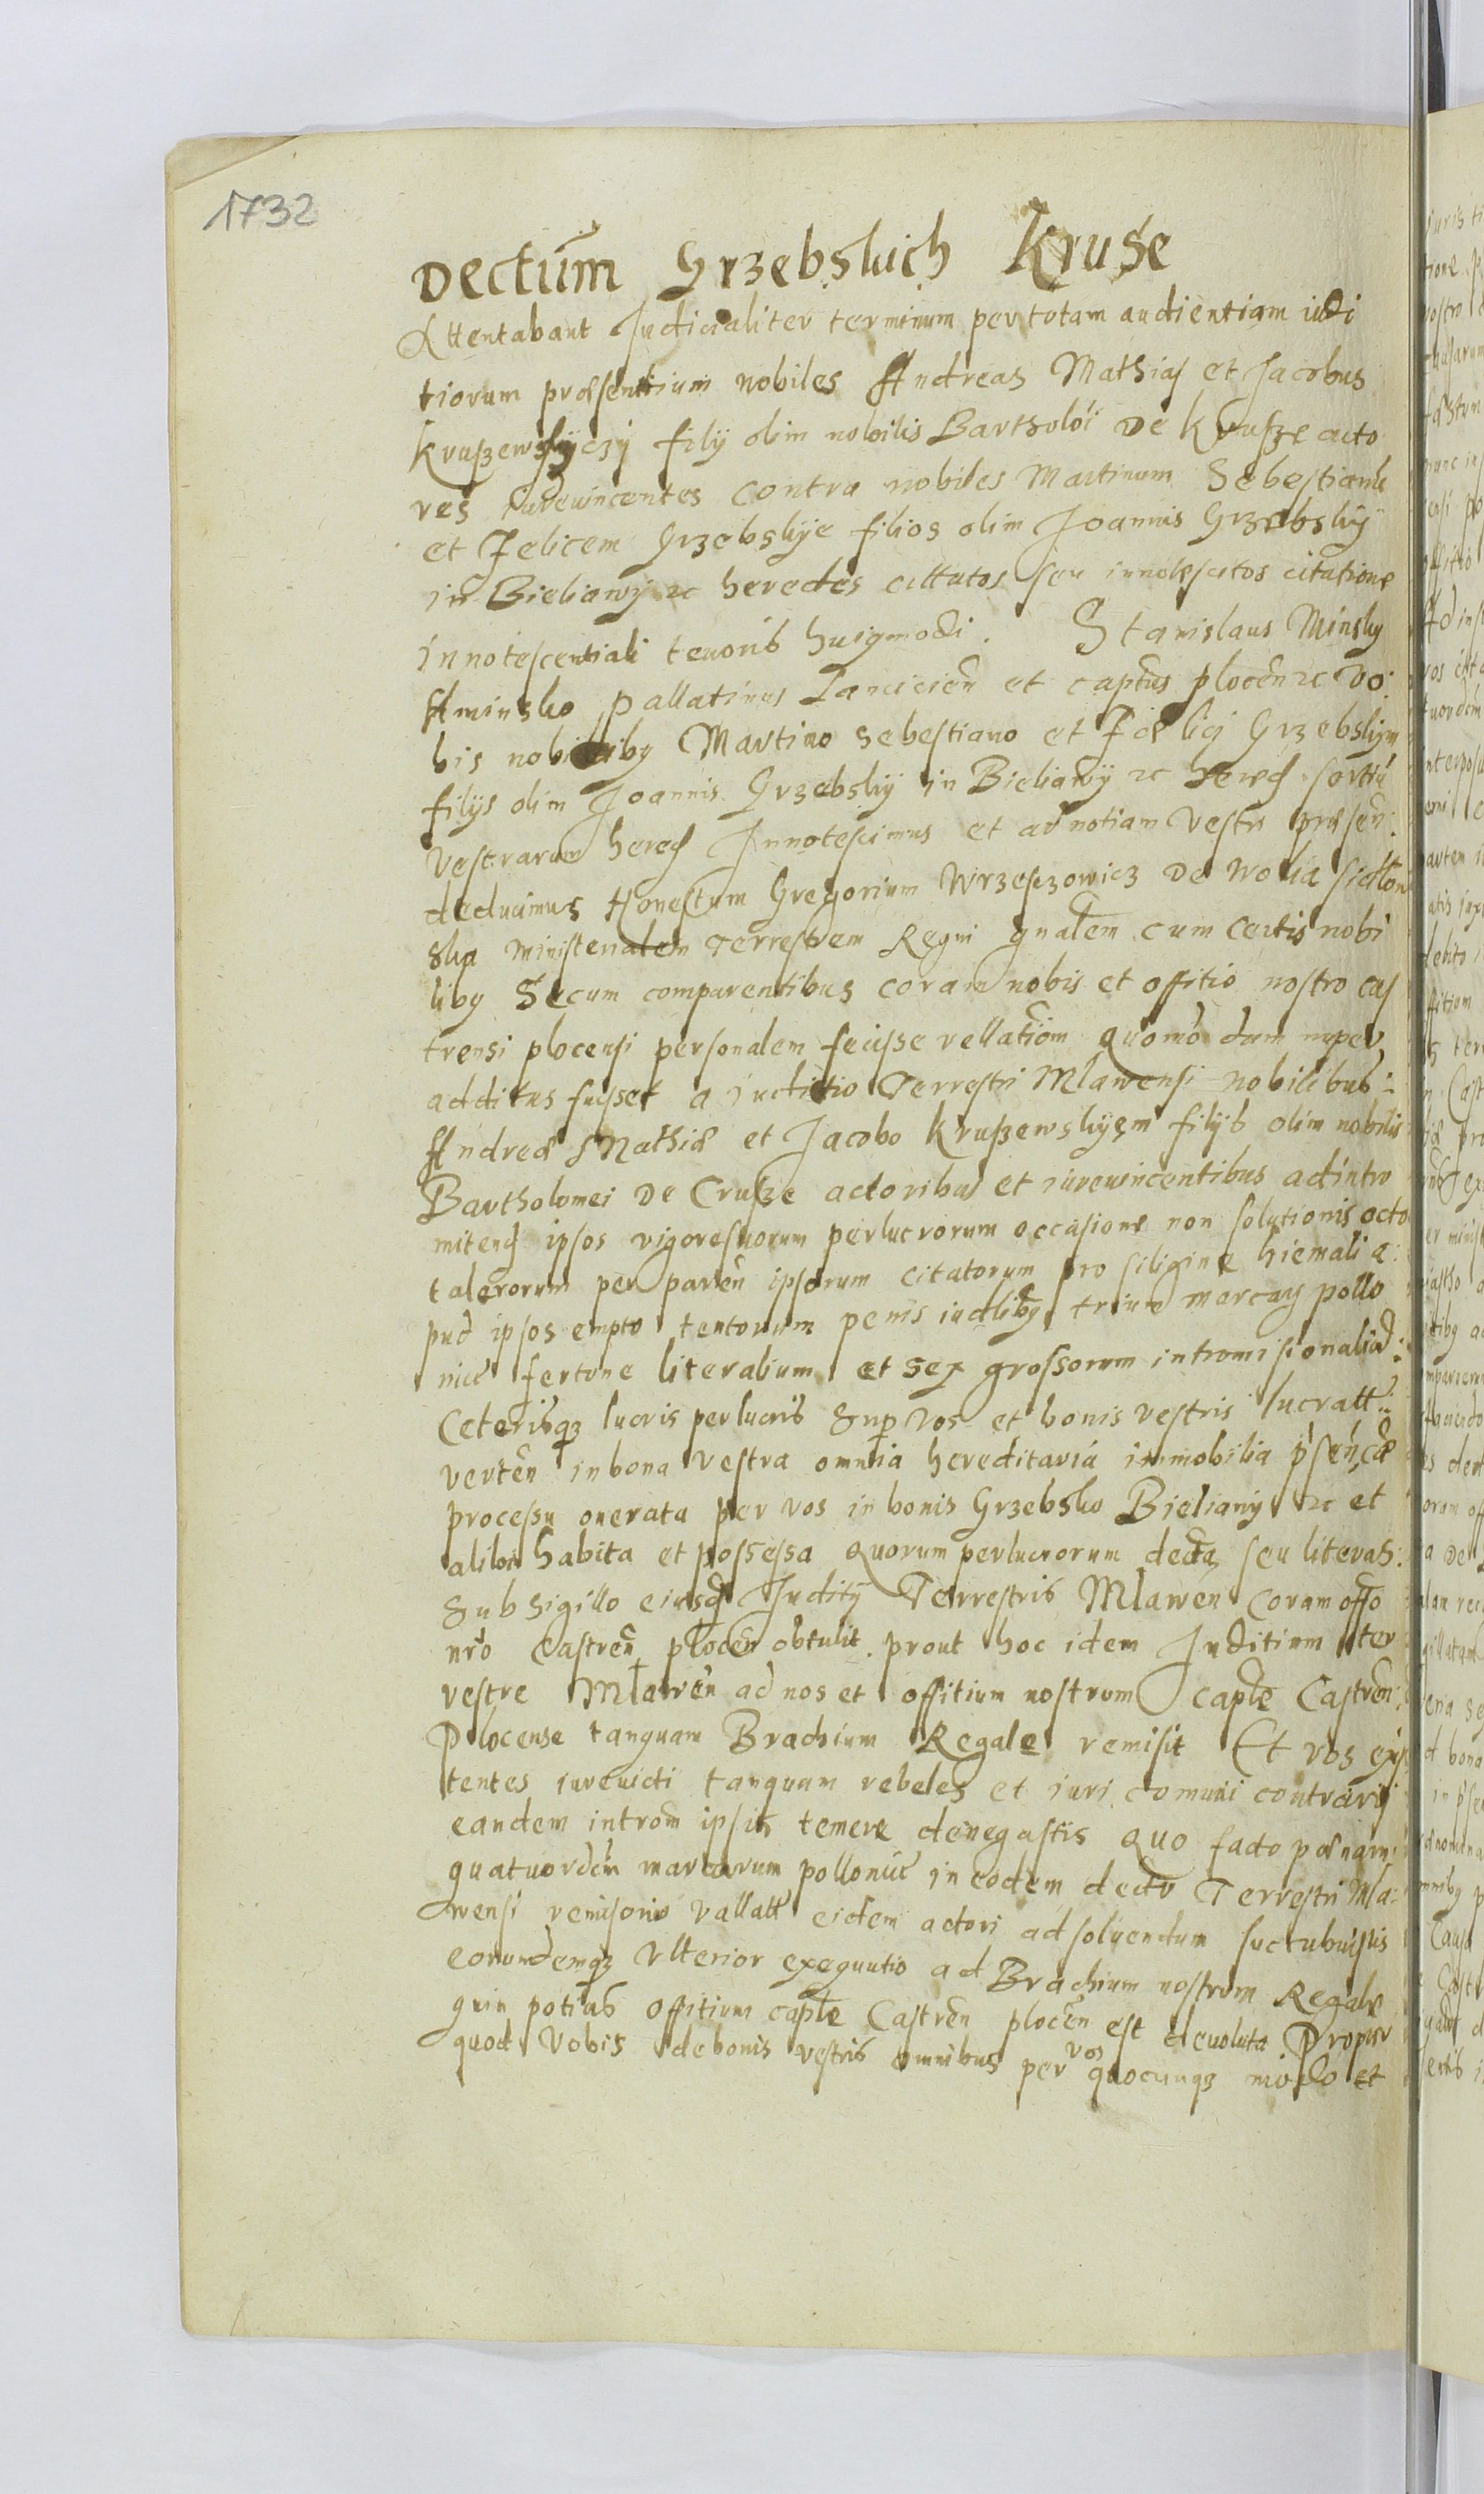 1732
Dectum̃ Grzebskich Kruse
Attentabant Judicialiter terminum per totam audientiam iudi
tiorum præsentium nobiles Andreas Mathias et Jacobus
Kruszewskyczy filÿ olim nobilis Bartholoi De Krusze acto
res iurevincentes contra nobiles Martinum Sebestianu
et Felicem Grzebskÿe filios olim Joannis Grzebskÿ
in Bieliawÿ &c heredes cittatos seu innotescitos citatione
innotescentiali tenoris huigmodi. Stanislaus Minsky
Aminsko pallatinus Lancicien̄ et captus plocen̄ &c vo:
bis nobiliby Martino Sebestiano et Fælici Grzebskym
filÿs olim Joannis Grzebskÿ in Bieliawÿ &c hered sortiu
vestrarum hered Innotescimus et ad notiam vestr præsen:
deducimus Honestum Gregorium Wrzesczowicz De Wolia
ska ministerialem Terrestrem Regni gnalem cum certis nobi
liby Secum comparentibus coram nobis et offitio nostro cas
trensi plocensi personalem fecisse rellatiom quomo dum nuper
additus fuisset a iuditio Terrestri Mlawensi nobilibus:
Andreæ Mathiæ et Jacobo Kruszewskyem filÿs olim nobilis
Bartholomei De Crusze actoribus et iurevincentibus ad intro
mitend ipsos vigore suorum perlucrorum occasione non solutionis octo
talerorum per parten ipsorum citatorum pro siligine hiemali a:
pud ipsos empto tentorum penis iudliby trium marcay pollo
nice fertone literalium et sex grossorum intromisionaliu:
Ceterisqz lucris perlucris Sup vos et bonis vestris lucratt:
verten in bona vestra omnia hereditaria immobilia
processu onerata per vos in bonis Grzebsko Bieliawÿ &c et
alibi habita et possessa quorum perlucrorum decta seu literas:
Sub sigillo eiusd Juditÿ Terrestris Mlawen coram offo
nro Castren plocen obtulit prout hoc idem Juditium ter
restre Mlawen ad nos et offitium nostrum caple Castren:
Plocense tanquam Brachium Regale remisit Et vos
tentes iurevicti tanquam rebeles et iuri comuni contrarÿ
eandem introm ipsis temere denegastis quo facto pænam:
quatuordem marcarum pollonice in eodem dectu Terrestri Mla:
wensi remisorio vallatt eidem actori ad soluendum succubuistis
eorumdemqz ulterior exequutio ad Brachium nostrum Regale
quin potius offitium caple Castren plocen est devoluta Propter
quod vobis de bonis vestris omnibus per vos quocunqz modo et